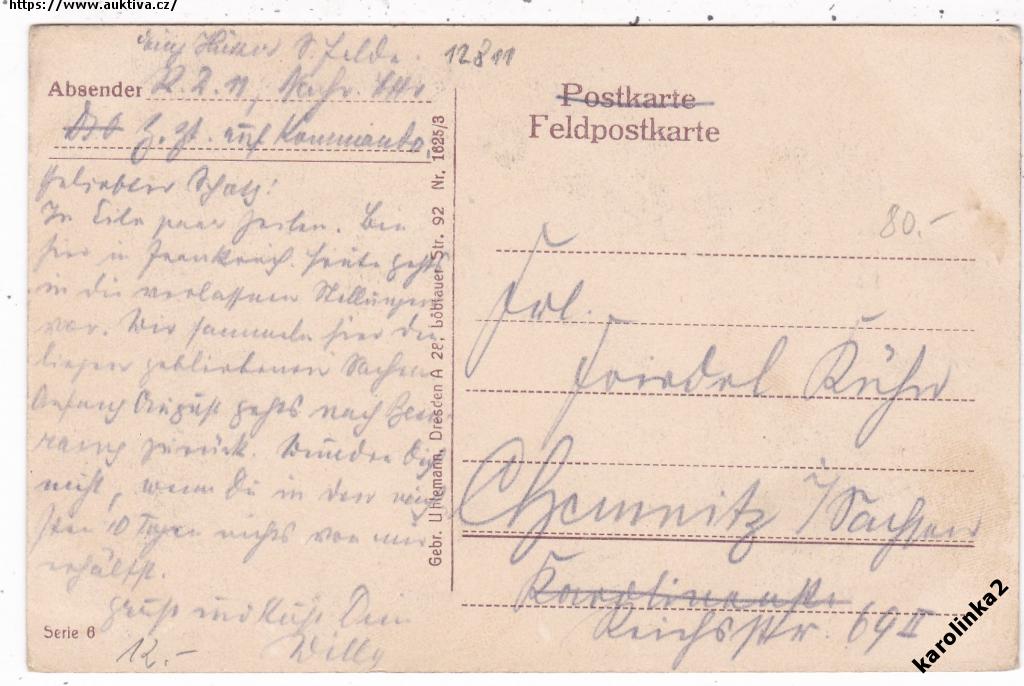 https://www.auktiva.cz/
12811
Absender R.Z.11, Nachr.
z. Zt. auf Kommando
Postkarte
Feldpostkarte
Geliebter Schatz!
In Eile paar Zeilen. Bin
hier in Frankreich. Heute gehts
in die verlassenen Stellungen
vor. Wir sammeln hier die
liegen gebliebenen Sachen
Anfang August gehts nach
zurück. Wundre Dich
nicht, wenn Du in den näch-
sten 10 Tagen nichts von mir
erhältst.
Gruß und Kuß Dein
Willy
Serie 6
12.-
Gebr. Uhlemann, Dresden A 28, Löbtauer Str. 92 Nr. 1625/3
80.-
Frl.
Friedel Kühn
Chemnitz i/Sachsen
Karolinenstr.
Reichsstr. 69 II
karolinka2